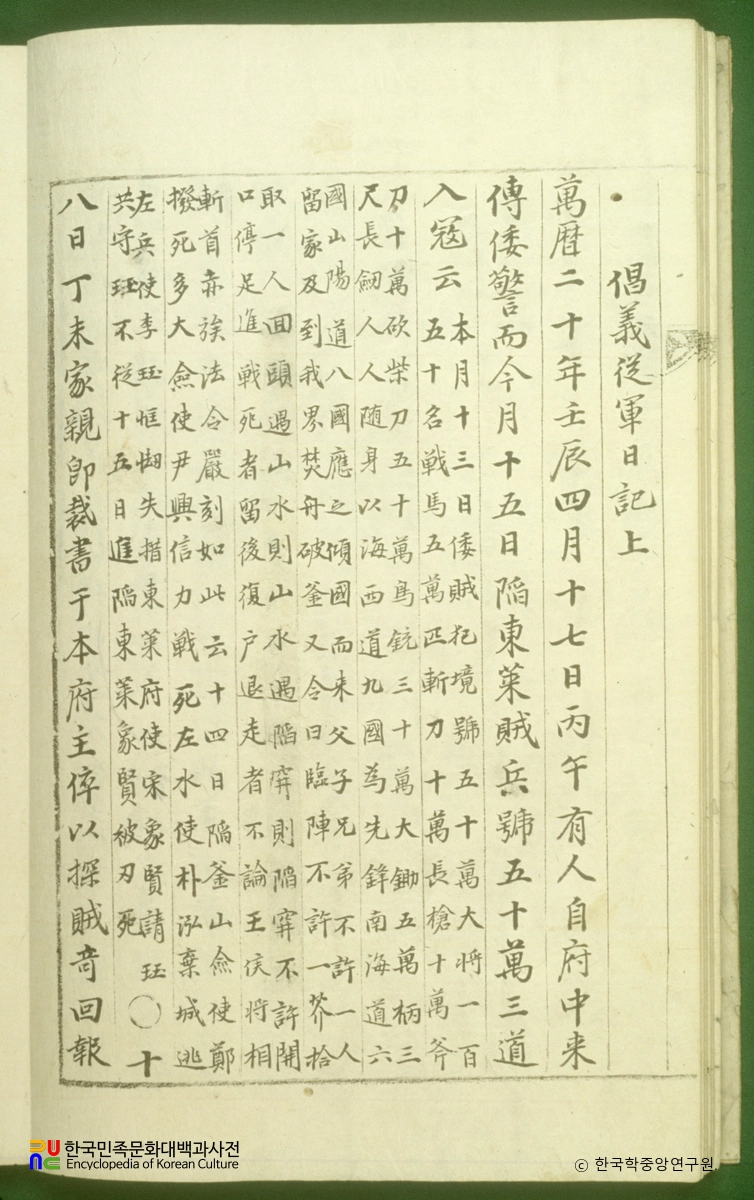 倡義從軍日記上
萬曆二十年壬辰四月十七日丙午有人自府中来
傳倭警而今月十五日陷東萊賊兵號五十萬三道
入寇云
本月十三日倭賊犯境號五十萬大將一百
五十名戰馬五萬匹斬刀十萬長槍十萬斧
刀十萬砍柴刀五十萬鳥銃三十萬大鋤五萬柄三
尺長劒人人随身以海西道九國為先鋒南海道六
國山陽道八國應之傾國而来父子兄弟不許一人
留家及到我界焚舟破釜又令曰臨陣不許一芥拾
取一人回頭遇山水則山水遇陷穽則陷穽不許開
口停足進戰死者留後復户退走者不論王侯將相
斬首赤族法令嚴刻如此云十四日陷釜山僉使鄭
撥死多大僉使尹興信力戰死左水使朴泓棄城逃
左兵使李珏恇㤼失措東萊府使宋象賢請珏
共守珏不從十五日進陷東萊象賢被刃死
〇十
八日丁未家親即裁書于本府主倅以探賊奇回報
한국민족문화대백과사전
Encyclopedia of Korean Culture
ⓒ 한국학중앙연구원